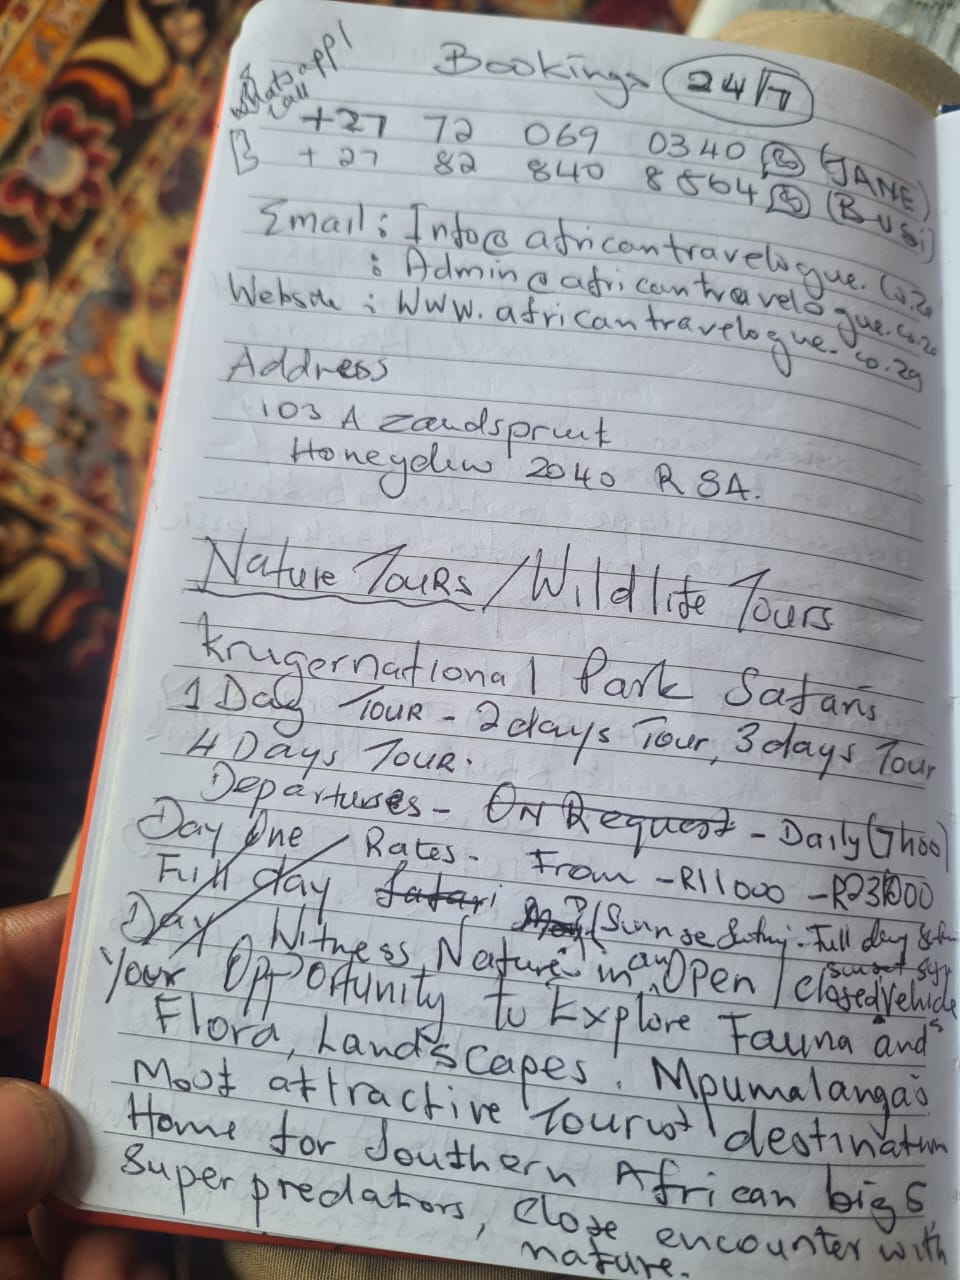 Bookings 24/7
Whatsapp/
Call
+27 72 069 0340 (JANE)
+27 82 840 8564 (BUSI)
Email: Info@africantravelogue.co.za
: Admin@africantravelogue.co.za
Website: www.africantravelogue.co.za
Address
103 A Zandspruit
Honeydew 2040 RSA.
Nature TOURS/Wildlife Tours
Krugernational Park Safaris
1 Day TOUR - 2 days Tour, 3 days Tour
4 Days TOUR.
Departures - ON Request - Daily (7h00)
Day One Rates - From - R11000 - R23000
Full day Safari (Sunrise Full day
Day Witness Nature in an Open/closed Vehicle
Your Opportunity to Explore Fauna and
Flora, Landscapes. Mpumalanga's
Most attractive Tourist destination
Home for Southern African big 5
Super predators, Close encounter with
nature.